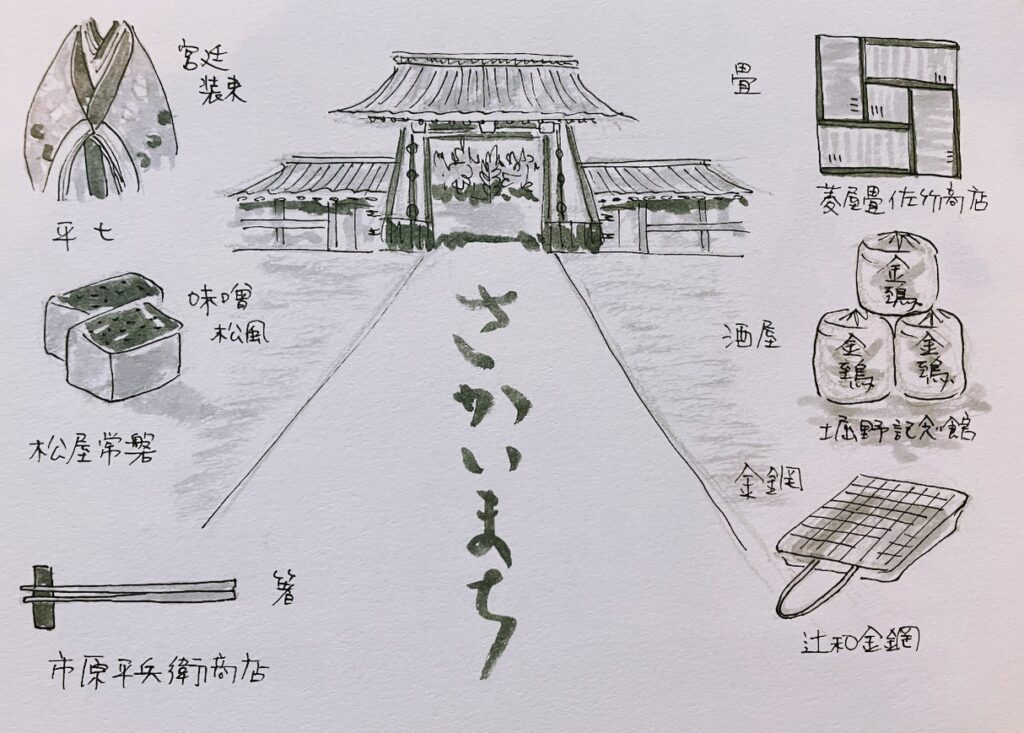 宮廷
装束
平七
味噌
松風
松屋常磐
箸
市原平兵衛商店
さかいまち
畳
菱屋畳佐竹商店
酒屋
金鵄
金鵄
金鵄
堀野記念館
金網
辻和金網